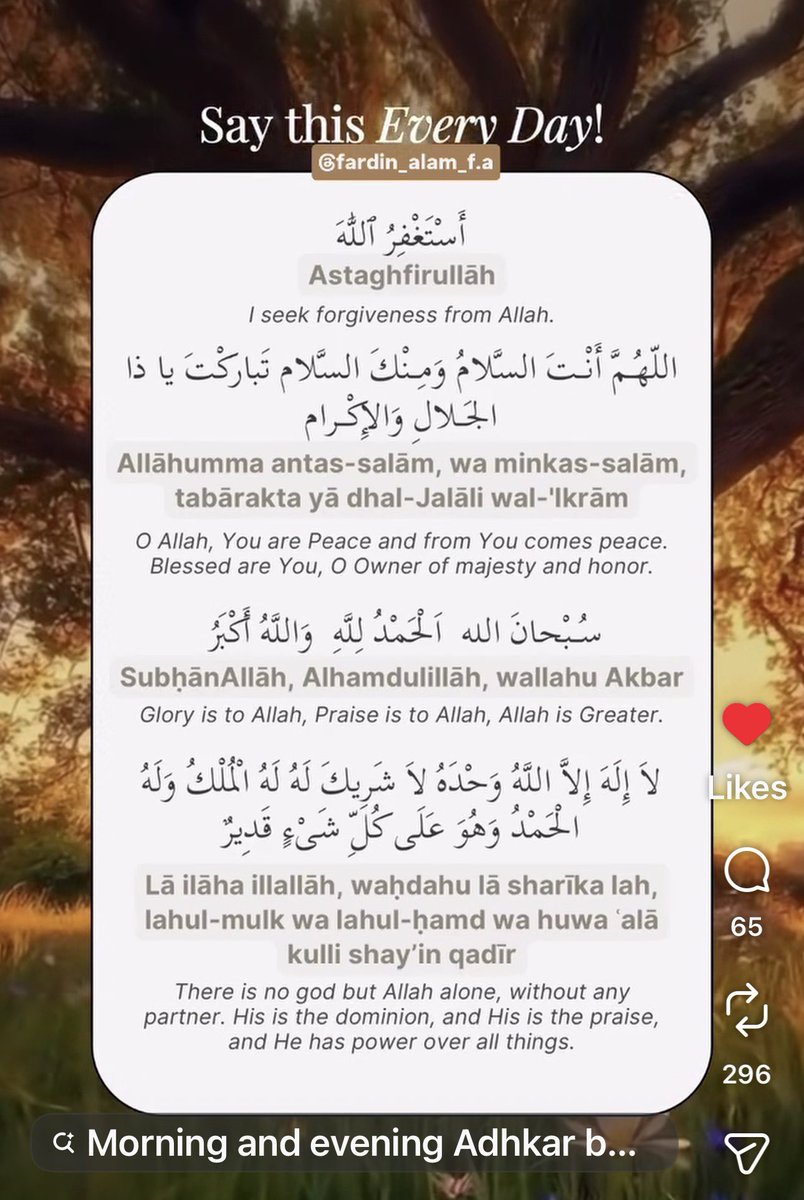 Say this Every Day!
@fardin_alam_f.a
أَسْتَغْفِرُ ٱللَّهَ
Astaghfirullāh
I seek forgiveness from Allah.
اللّهُـمَّ أَنْـتَ السَّلامُ وَمِـنْكَ السَّلام تَبارَكْتَ يا ذا
الجَـلالِ وَالإِكْـرام
Allāhumma antas-salām, wa minkas-salām,
tabārakta yā dhal-Jalāli wal-'Ikrām
O Allah, You are Peace and from You comes peace.
Blessed are You, O Owner of majesty and honor.
سُـبْحانَ الله اَلْحَمْدُ لِلَّهِ وَاللَّهُ أَكْبَرُ
SubḥānAllāh, Alhamdulillāh, wallahu Akbar
Glory is to Allah, Praise is to Allah, Allah is Greater.
لاَ إِلَهَ إِلاَّ اللَّهُ وَحْدَهُ لاَ شَرِيكَ لَهُ لَهُ الْمُلْكُ وَلَهُ
الْحَمْدُ وَهُوَ عَلَى كُلِّ شَىْءٍ قَدِيرٌ
Lā ilāha illallāh, waḥdahu lā sharīka lah,
lahul-mulk wa lahul-ḥamd wa huwa ʿalā
kulli shay’in qadīr
There is no god but Allah alone, without any
partner. His is the dominion, and His is the praise,
and He has power over all things.
Likes
65
296
Morning and evening Adhkar b...